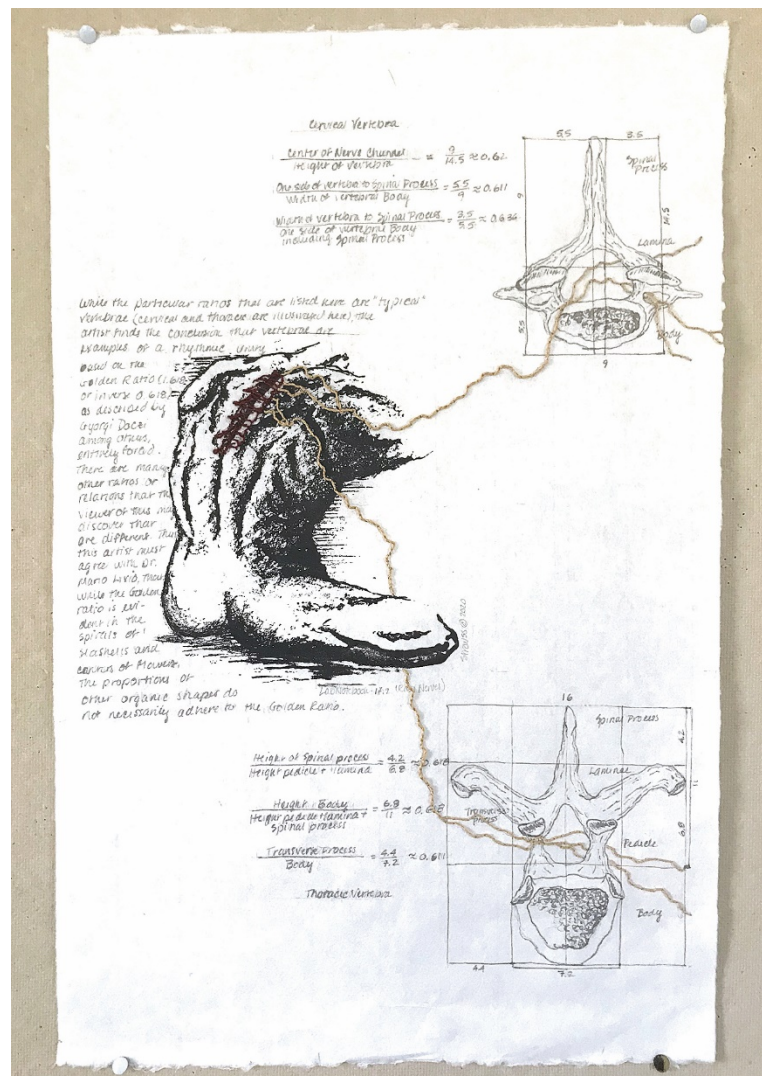 Cervical Vertebra
Center of Nerve Channel
Height of Vertebra
= 9/14.5 ≈ 0.62
One side of vertebra to Spinal Process
Width of Vertebral Body
= 5.5/9 ≈ 0.611
Width of vertebra to Spinal Process
One side of vertebral Body
including Spinal Process
= 3.5/5.5 ≈ 0.636
5.5
3.5
Spinal
Process
9
14.5
Lamina
5.5
Body
9
While the particular ratios that are listed here are "typical"
vertebrae (cervical and thoracic are illustrated here), the
artist finds the conclusion that vertebrae are
examples of a rhythmic unity
based on the
Golden Ratio (1.618
or inverse 0.618)
as described by
Gyorgi Doczi
among others,
entirely forced.
There are many
other ratios or
relations that the
viewer of this may
discover that
are different. Thus
this artist must
agree with Dr.
Mario Livio, that
while the Golden
ratio is evi-
dent in the
spirals of
seashells and
centers of flowers,
the proportions of
other organic shapes do
not necessarily adhere to the Golden Ratio.
© 2020
Height of Spinal process
Height pedicle + lamina
= 4.2/6.8 ≈ 0.618
Height: Body
Height pedicle + lamina +
Spinal process
= 6.8/11 ≈ 0.618
Transverse Process
Body
= 4.4/7.2 ≈ 0.611
Thoracic Vertebra
16
Spinal Process
4.2
Laminae
11
Transverse
process
6.8
Pedicle
Body
4.4
7.2